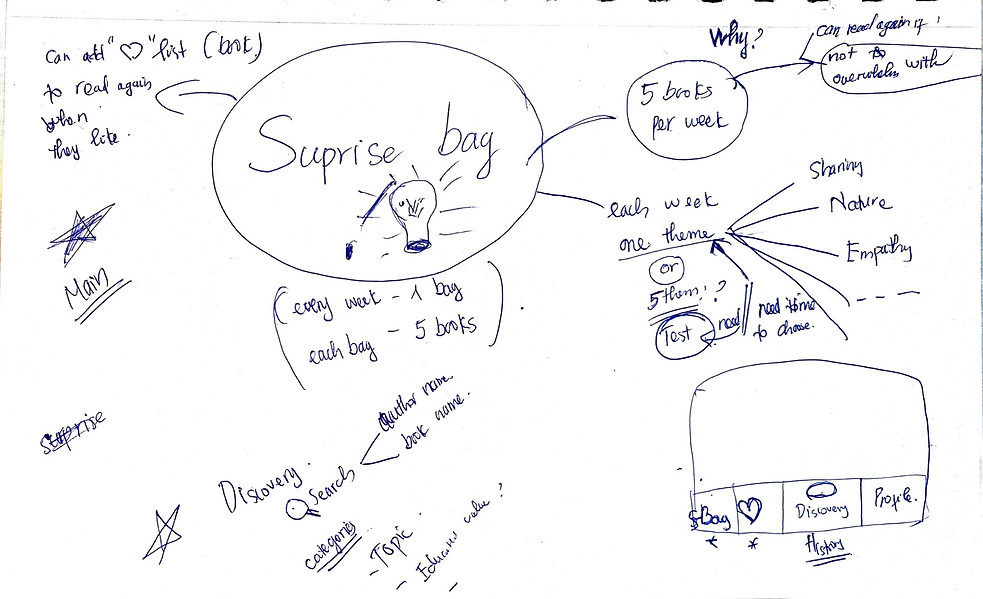 Can add "♡" list (book)
to read again
when
they like.
Main
Suprise bag
(every week - 1 bag
each bag - 5 books)
Why?
5 books
per week
can read again if
not to
overwhelm with
each week
one theme
or
5 them ?
Test
need
need time
to choose.
Sharing
Nature
Empathy
Suprise
Discovery.
Search
author name.
book name.
categories
- Topic
- Education value ?
-
S Bag
♡
Discovery
Profile.
* *
History